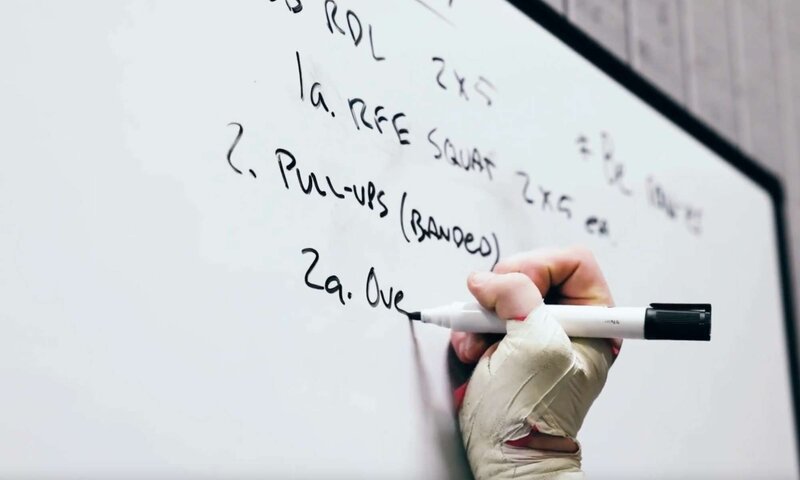 RDL 2x5
1a. RFE SQUAT 2x5 ea.
2. PULL-UPS (BANDED)
2a. Ove